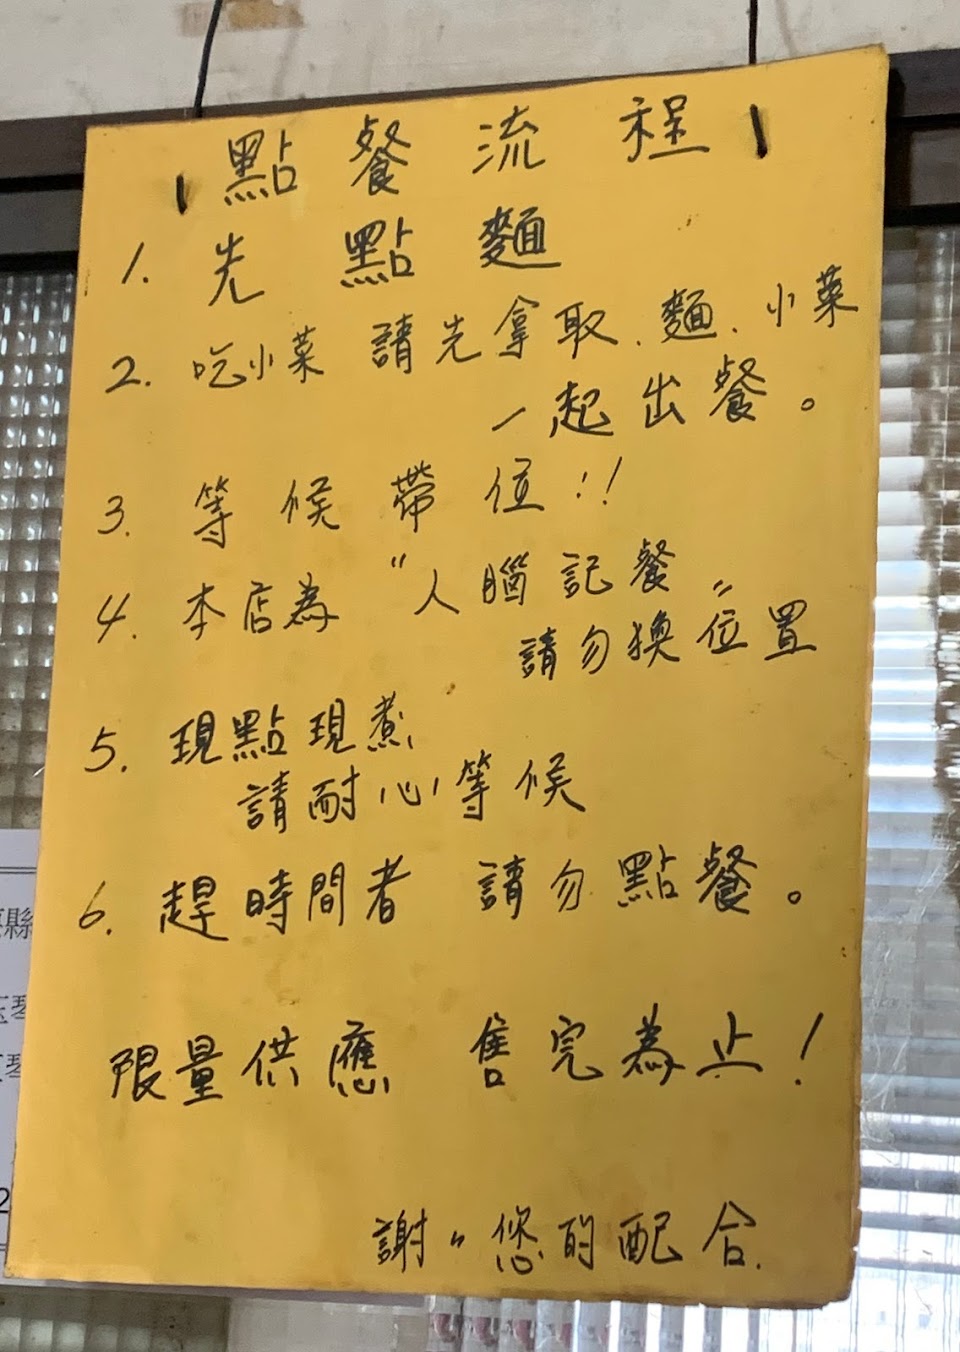 點餐流程
1. 先點麵
2. 吃小菜 請先拿取、麵、小菜
一起出餐。
3. 等候帶位!!
4. 本店為"人腦記餐"
請勿換位置
5. 現點現煮
請耐心等候
6. 趕時間者 請勿點餐。
限量供應 售完為止!
謝〃您的配合.
縣
2